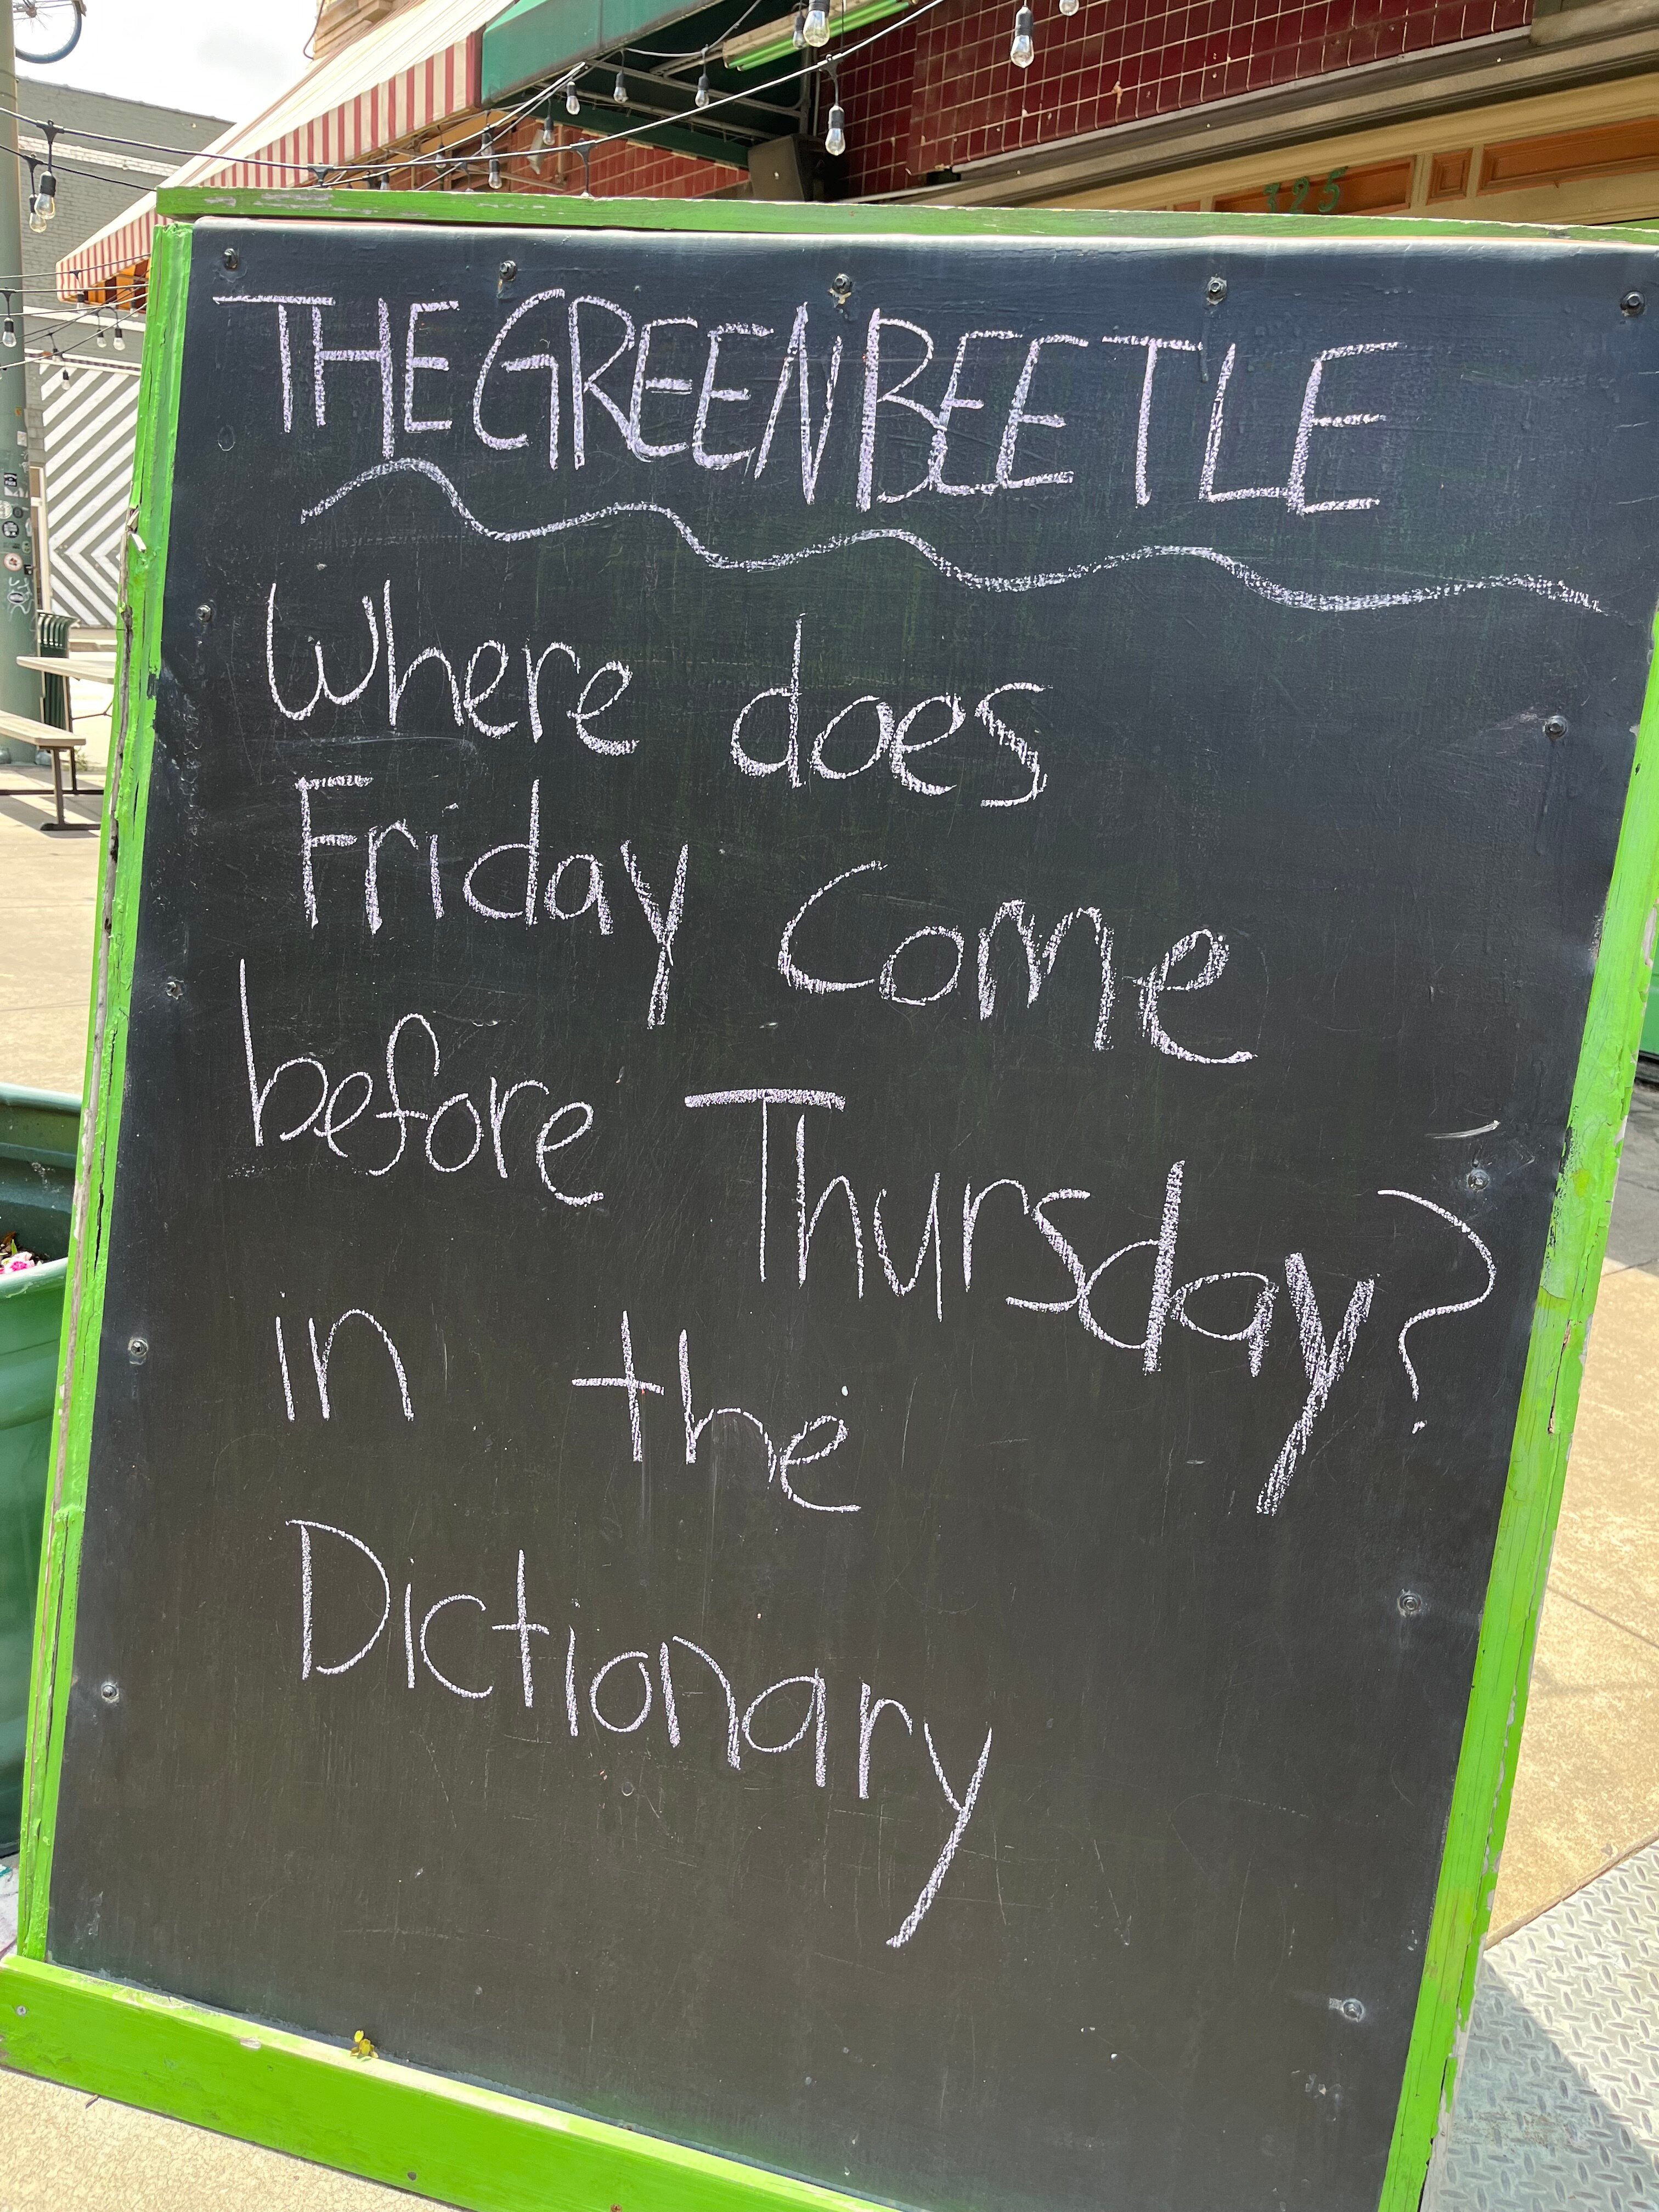 325
THE GREEN BEETLE
Where does
Friday Come
before Thursday?
in the
Dictionary